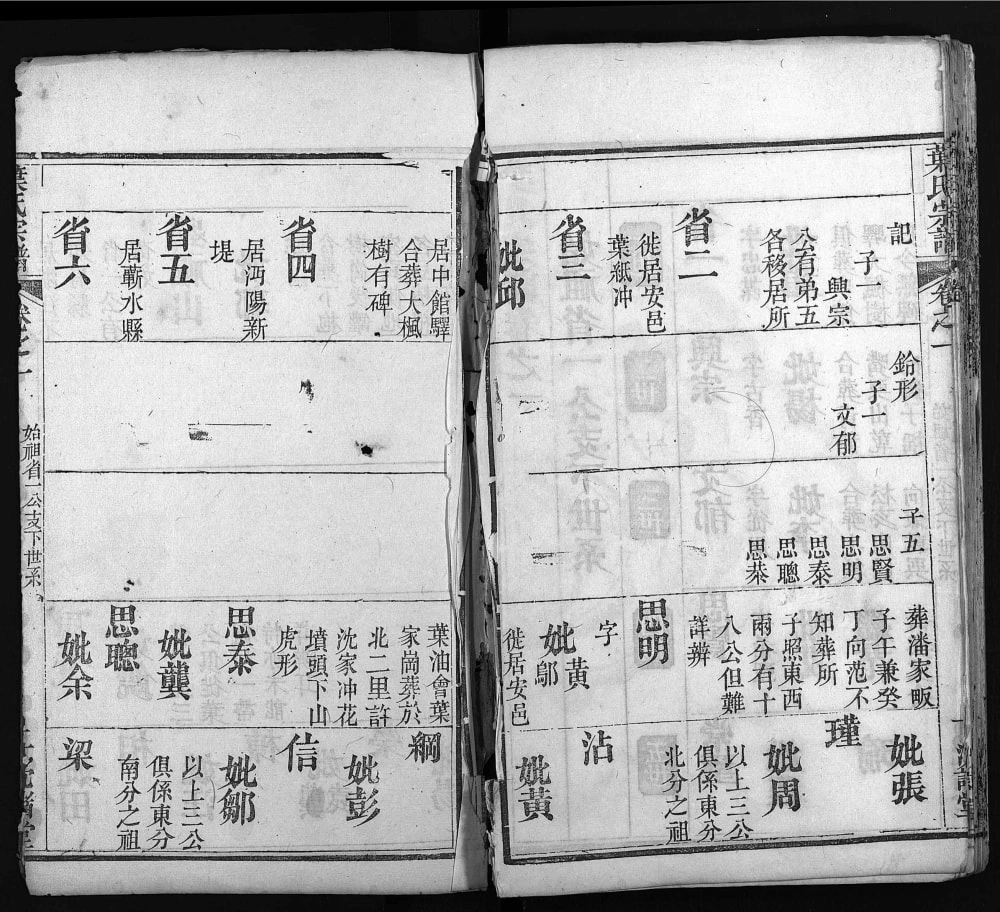 葉氏宗譜
卷之一
記
子一
興宗
公有弟五
各移居所
省二
徙居安邑
葉紙冲
省三
妣邱
鈴形
子一
文郁
子五
思賢
思明
思泰
思聰
思恭
葬潘家畈
子午兼癸
丁向范不
知葬所
子照東西
兩分有十
八公但難
詳辨
思明
字
妣黃
鄔
徙居安邑
妣張
瑾
妣周
以上三公
俱係東分
北分之祖
沾
妣黃
居中館驛
合葬大楓
樹有碑
省四
居沔陽新
堤
省五
居蘄水縣
省六
葉油會葉
家崗葬於
北二里許
沈家冲花
墳頭下山
虎形
思泰
妣龔
思聰
妣余
綱
妣彭
信
妣鄒
以上三公
俱係東分
南分之祖
梁
葉氏宗譜
卷之一
始祖省一公支下世系